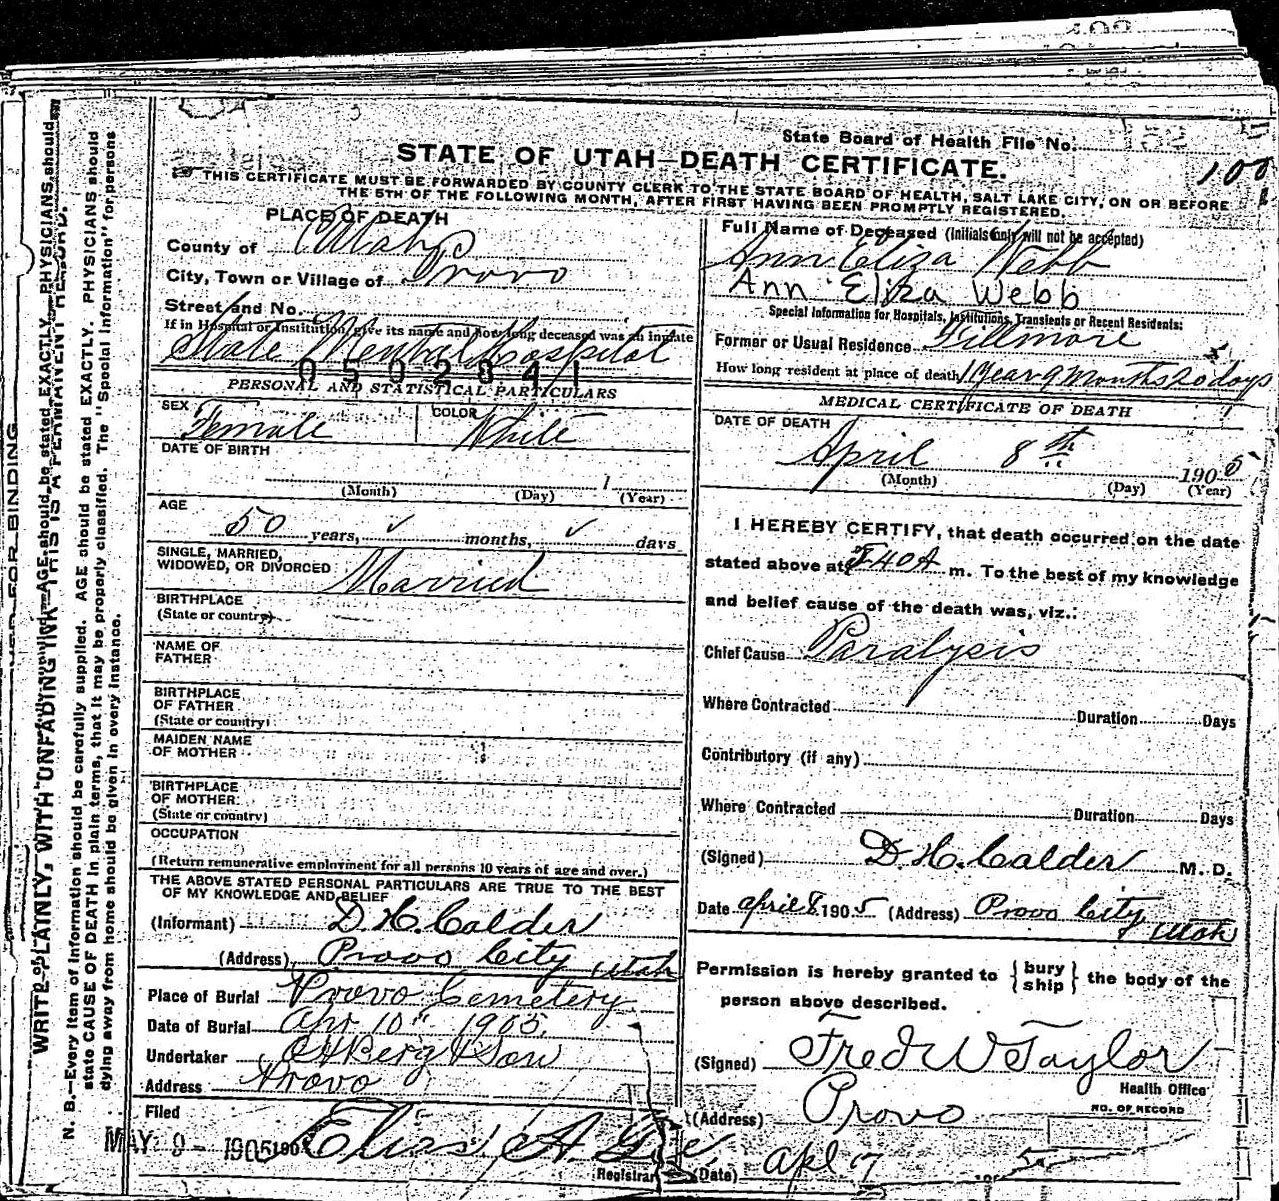 State Board of Health File No.
100
STATE OF UTAH—DEATH CERTIFICATE.
THIS CERTIFICATE MUST BE FORWARDED BY COUNTY CLERK TO THE STATE BOARD OF HEALTH, SALT LAKE CITY, ON OR BEFORE
THE 5TH OF THE FOLLOWING MONTH, AFTER FIRST HAVING BEEN PROMPTLY REGISTERED.
PLACE OF DEATH
County of Utah
City, Town or Village of Provo
Street and No.
If in Hospital or Institution, give its name and how long deceased was an inmate
State Mental Hospital
0502841
PERSONAL AND STATISTICAL PARTICULARS
SEX Female COLOR White
DATE OF BIRTH
1
(Month) (Day) (Year)
AGE
50 years, ✓ months, ✓ days
SINGLE, MARRIED,
WIDOWED, OR DIVORCED Married
BIRTHPLACE
(State or country)
NAME OF
FATHER
BIRTHPLACE
OF FATHER
(State or country)
MAIDEN NAME
OF MOTHER
BIRTHPLACE
OF MOTHER
(State or country)
OCCUPATION
(Return remunerative employment for all persons 10 years of age and over.)
THE ABOVE STATED PERSONAL PARTICULARS ARE TRUE TO THE BEST
OF MY KNOWLEDGE AND BELIEF
(Informant) D H Calder
(Address) Provo City Utah
Place of Burial Provo Cemetery
Date of Burial Apr 10" 1905.
Undertaker Berg & Son
Address Provo
Filed
MAY 9 - 1905 190 Elias A Gee
Registrar
Full Name of Deceased (Initials only will not be accepted)
Ann Eliza Webb
Ann Eliza Webb
Special Information for Hospitals, Institutions, Transients or Recent Residents:
Former or Usual Residence Fillmore
How long resident at place of death 1 Year 9 Months 20 days
MEDICAL CERTIFICATE OF DEATH
DATE OF DEATH
April 8th 1905
(Month) (Day) (Year)
I HEREBY CERTIFY, that death occurred on the date
stated above at 8 40 A m. To the best of my knowledge
and belief cause of the death was, viz.:
Chief Cause Paralysis
Where Contracted Duration Days
Contributory (if any)
Where Contracted Duration Days
(Signed) D H. Calder M. D.
Date april 8, 1905 (Address) Provo City
Utah
Permission is hereby granted to { bury ship } the body of the
person above described.
(Signed) Fred W Taylor
Health Office
(Address) Provo
NO. OF RECORD
(Date) apl 7
WRITE PLAINLY, WITH UNFADING INK—THIS IS A PERMANENT RECORD.
N. B.—Every item of information should be carefully supplied. AGE should be stated EXACTLY. PHYSICIANS should
state CAUSE OF DEATH in plain terms, that it may be properly classified. The "Special Information" for persons
dying away from home should be given in every instance.
FOR BINDING